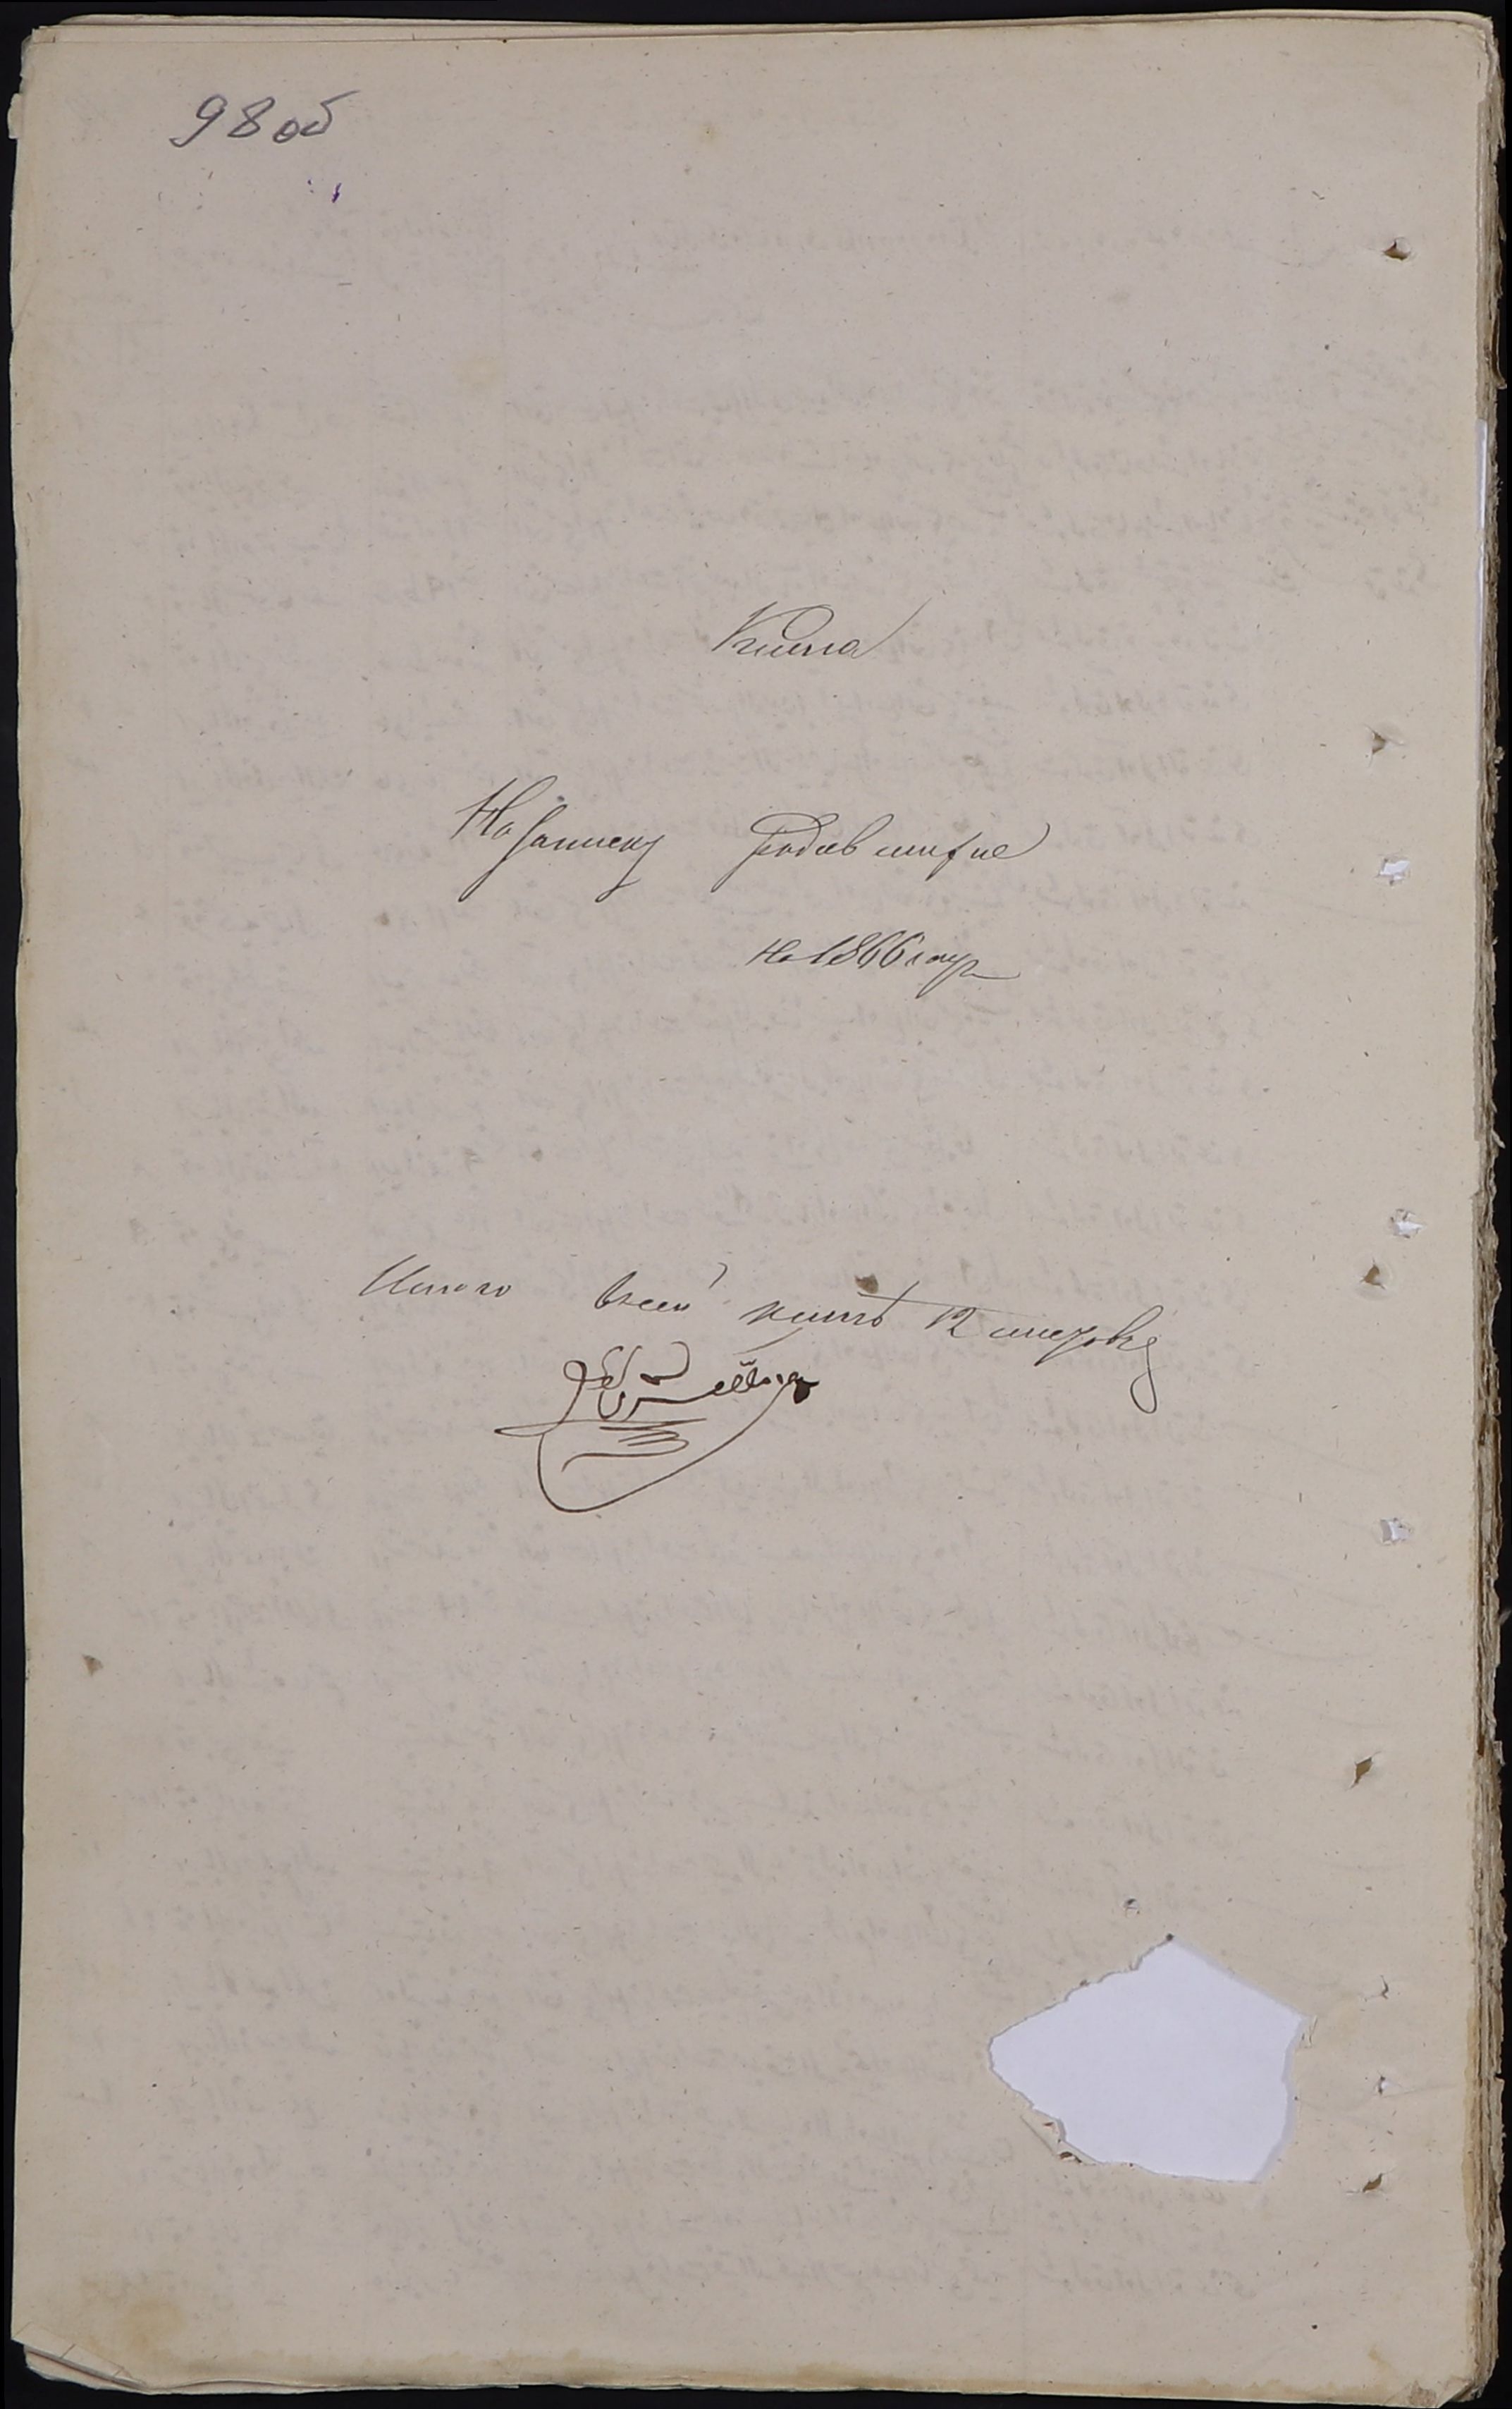 98 об
Книга
На записку родившихся
на 1866 году
Итого всей книге 12 шнуровых